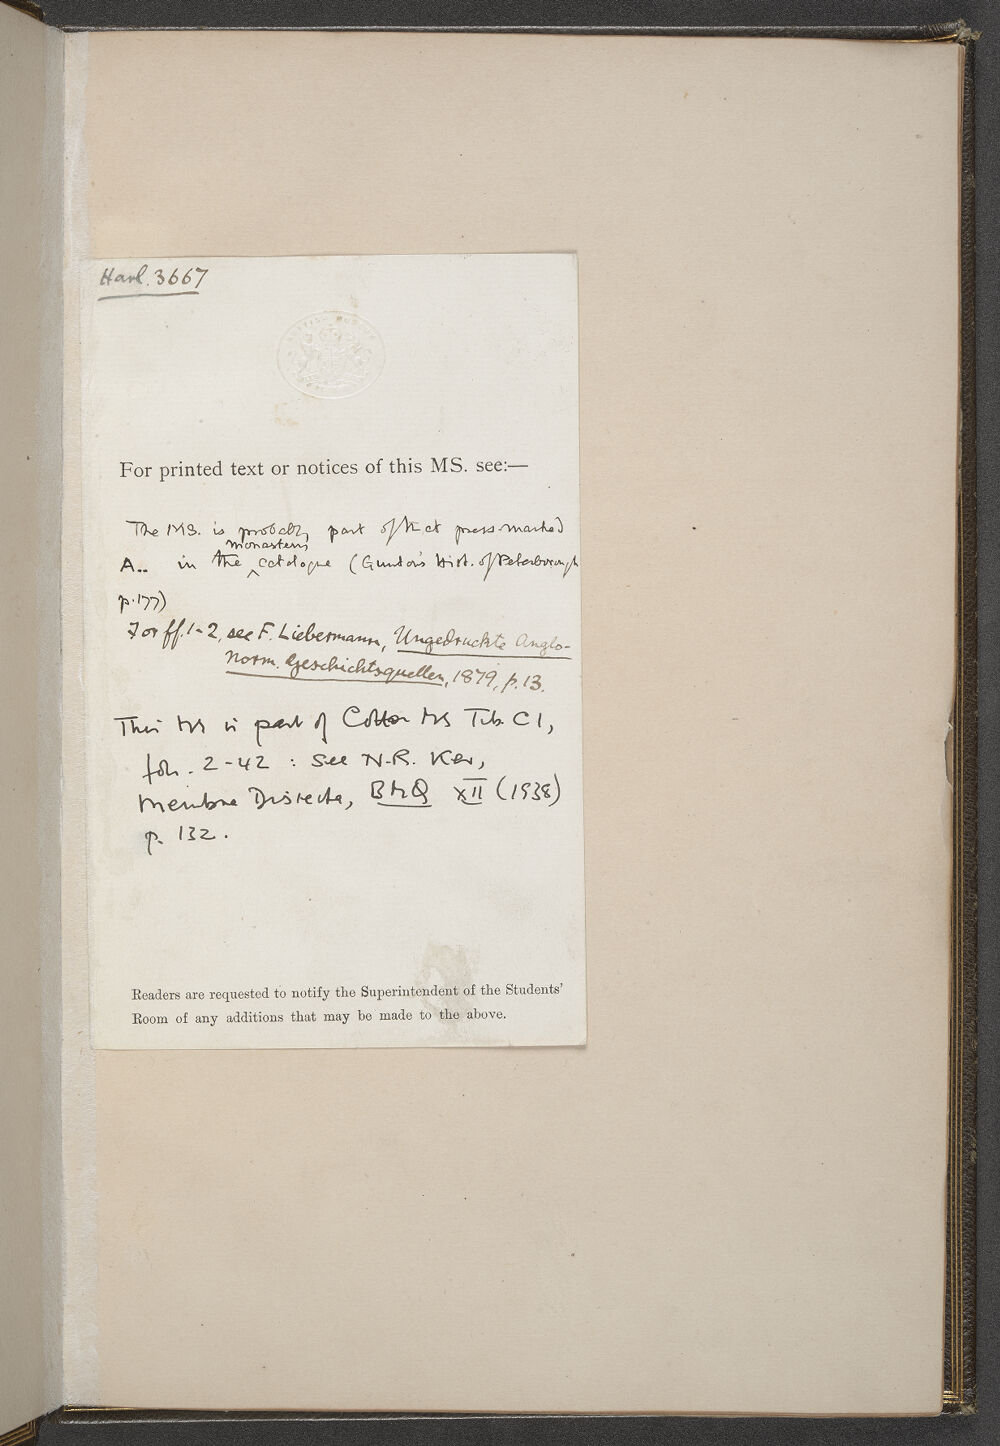 Harl. 3667
BRITISH MUSEUM
For printed text or notices of this MS. see:—
The MS. is probably part of that press-marked
monastery
A.. in the ‸ catalogue (Gunton's Hist. of Peterborough
p. 177)
For ff. 1-2, see F. Liebermann, Ungedruckte Anglo-
Norm. Geschichtsquellen, 1879, p. 13.
This MS is part of Cotton MS Tib. C I,
foll. 2-42 : see N. R. Ker,
Membra Disiecta, BMQ XII (1938)
p. 132.
Readers are requested to notify the Superintendent of the Students'
Room of any additions that may be made to the above.